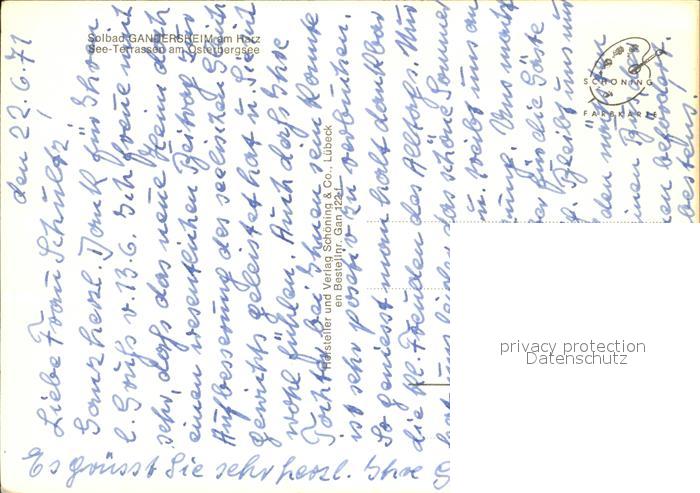 Solbad GANDERSHEIM am Harz
See-Terrassen am Osterbergsee
SCHÖNING
FARBKARTE
Hersteller und Verlag Schöning & Co., Lübeck
en Bestellnr. Gan 122 f
den 22.6.71
Liebe Frau Schultz!
Ganz herzl. Dank für Ihren
l. Gruß v. 13.6. Ich freue mich
sehr, daß das neue Heim doch
einen wesentlichen Beitrag zur
Aufbesserung des seelischen Gleich
gewichts geleistet hat u. Sie sich
wohl fühlen. Auch daß Ihre
Tochter bei Ihnen sein konnte
ist sehr positiv zu verbuchen.
So geniesst man halt dankbar
die kl. Freuden des Alltags. Nur
hat uns leider das schöne Sommer
u. treibt uns an
Uns
für die Gäste
bleibt uns nur
den
einen
beförden.
bestens,
Es grüsst Sie sehr herzl. Ihre
privacy protection
Datenschutz